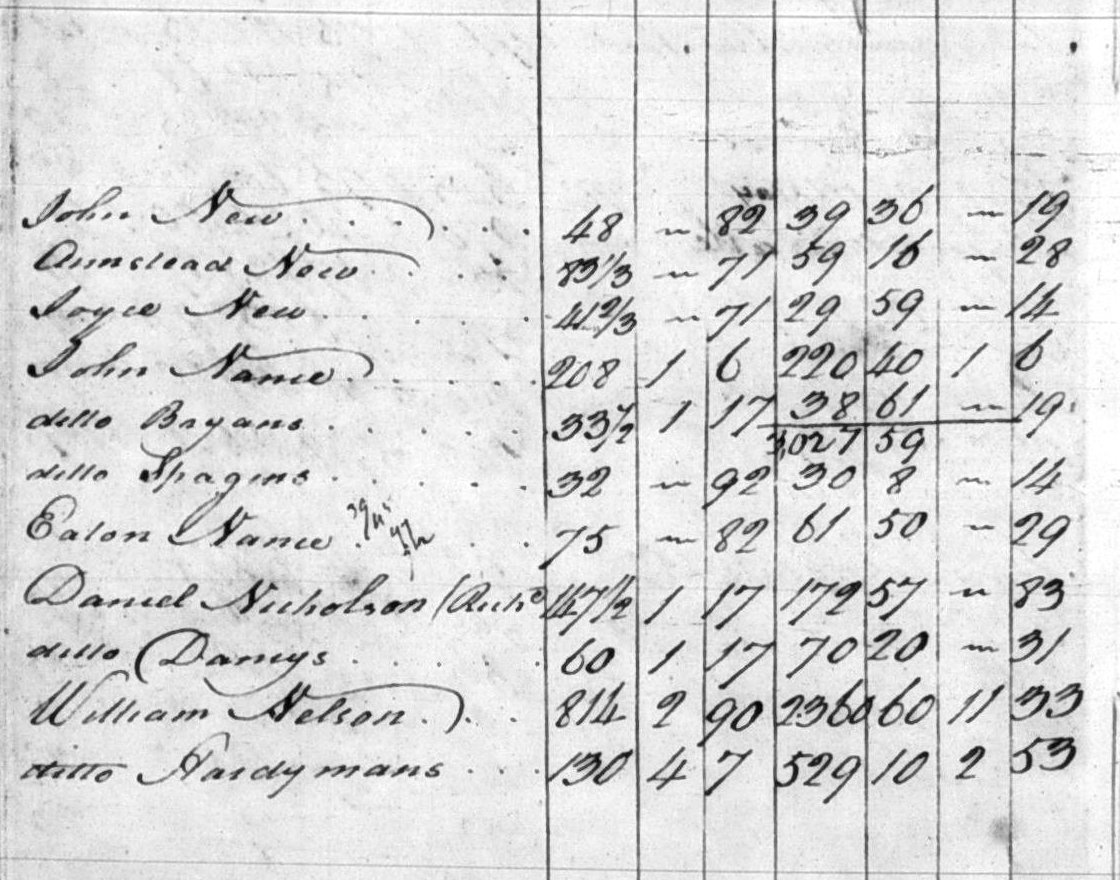 John New 48 ~ 82 39 36 ~ 19
Armstead New 83 1/3 ~ 71 59 16 ~ 28
Joyce New 41 2/3 ~ 71 29 59 ~ 14
John Nance 208 1 6 220 40 1 6
ditto Bryans 33 1/2 1 17 38 61 ~ 19
3,027 59
ditto Spagins 32 ~ 92 30 8 ~ 14
Eaton Nance 75 ~ 82 61 50 ~ 29
Daniel Nicholson (Rich^d 147 1/2 1 17 172 57 ~ 83
ditto (Dancys 60 1 17 70 20 ~ 31
William Nelson 814 2 90 2360 60 11 33
ditto Hardymans 130 4 7 529 10 2 53